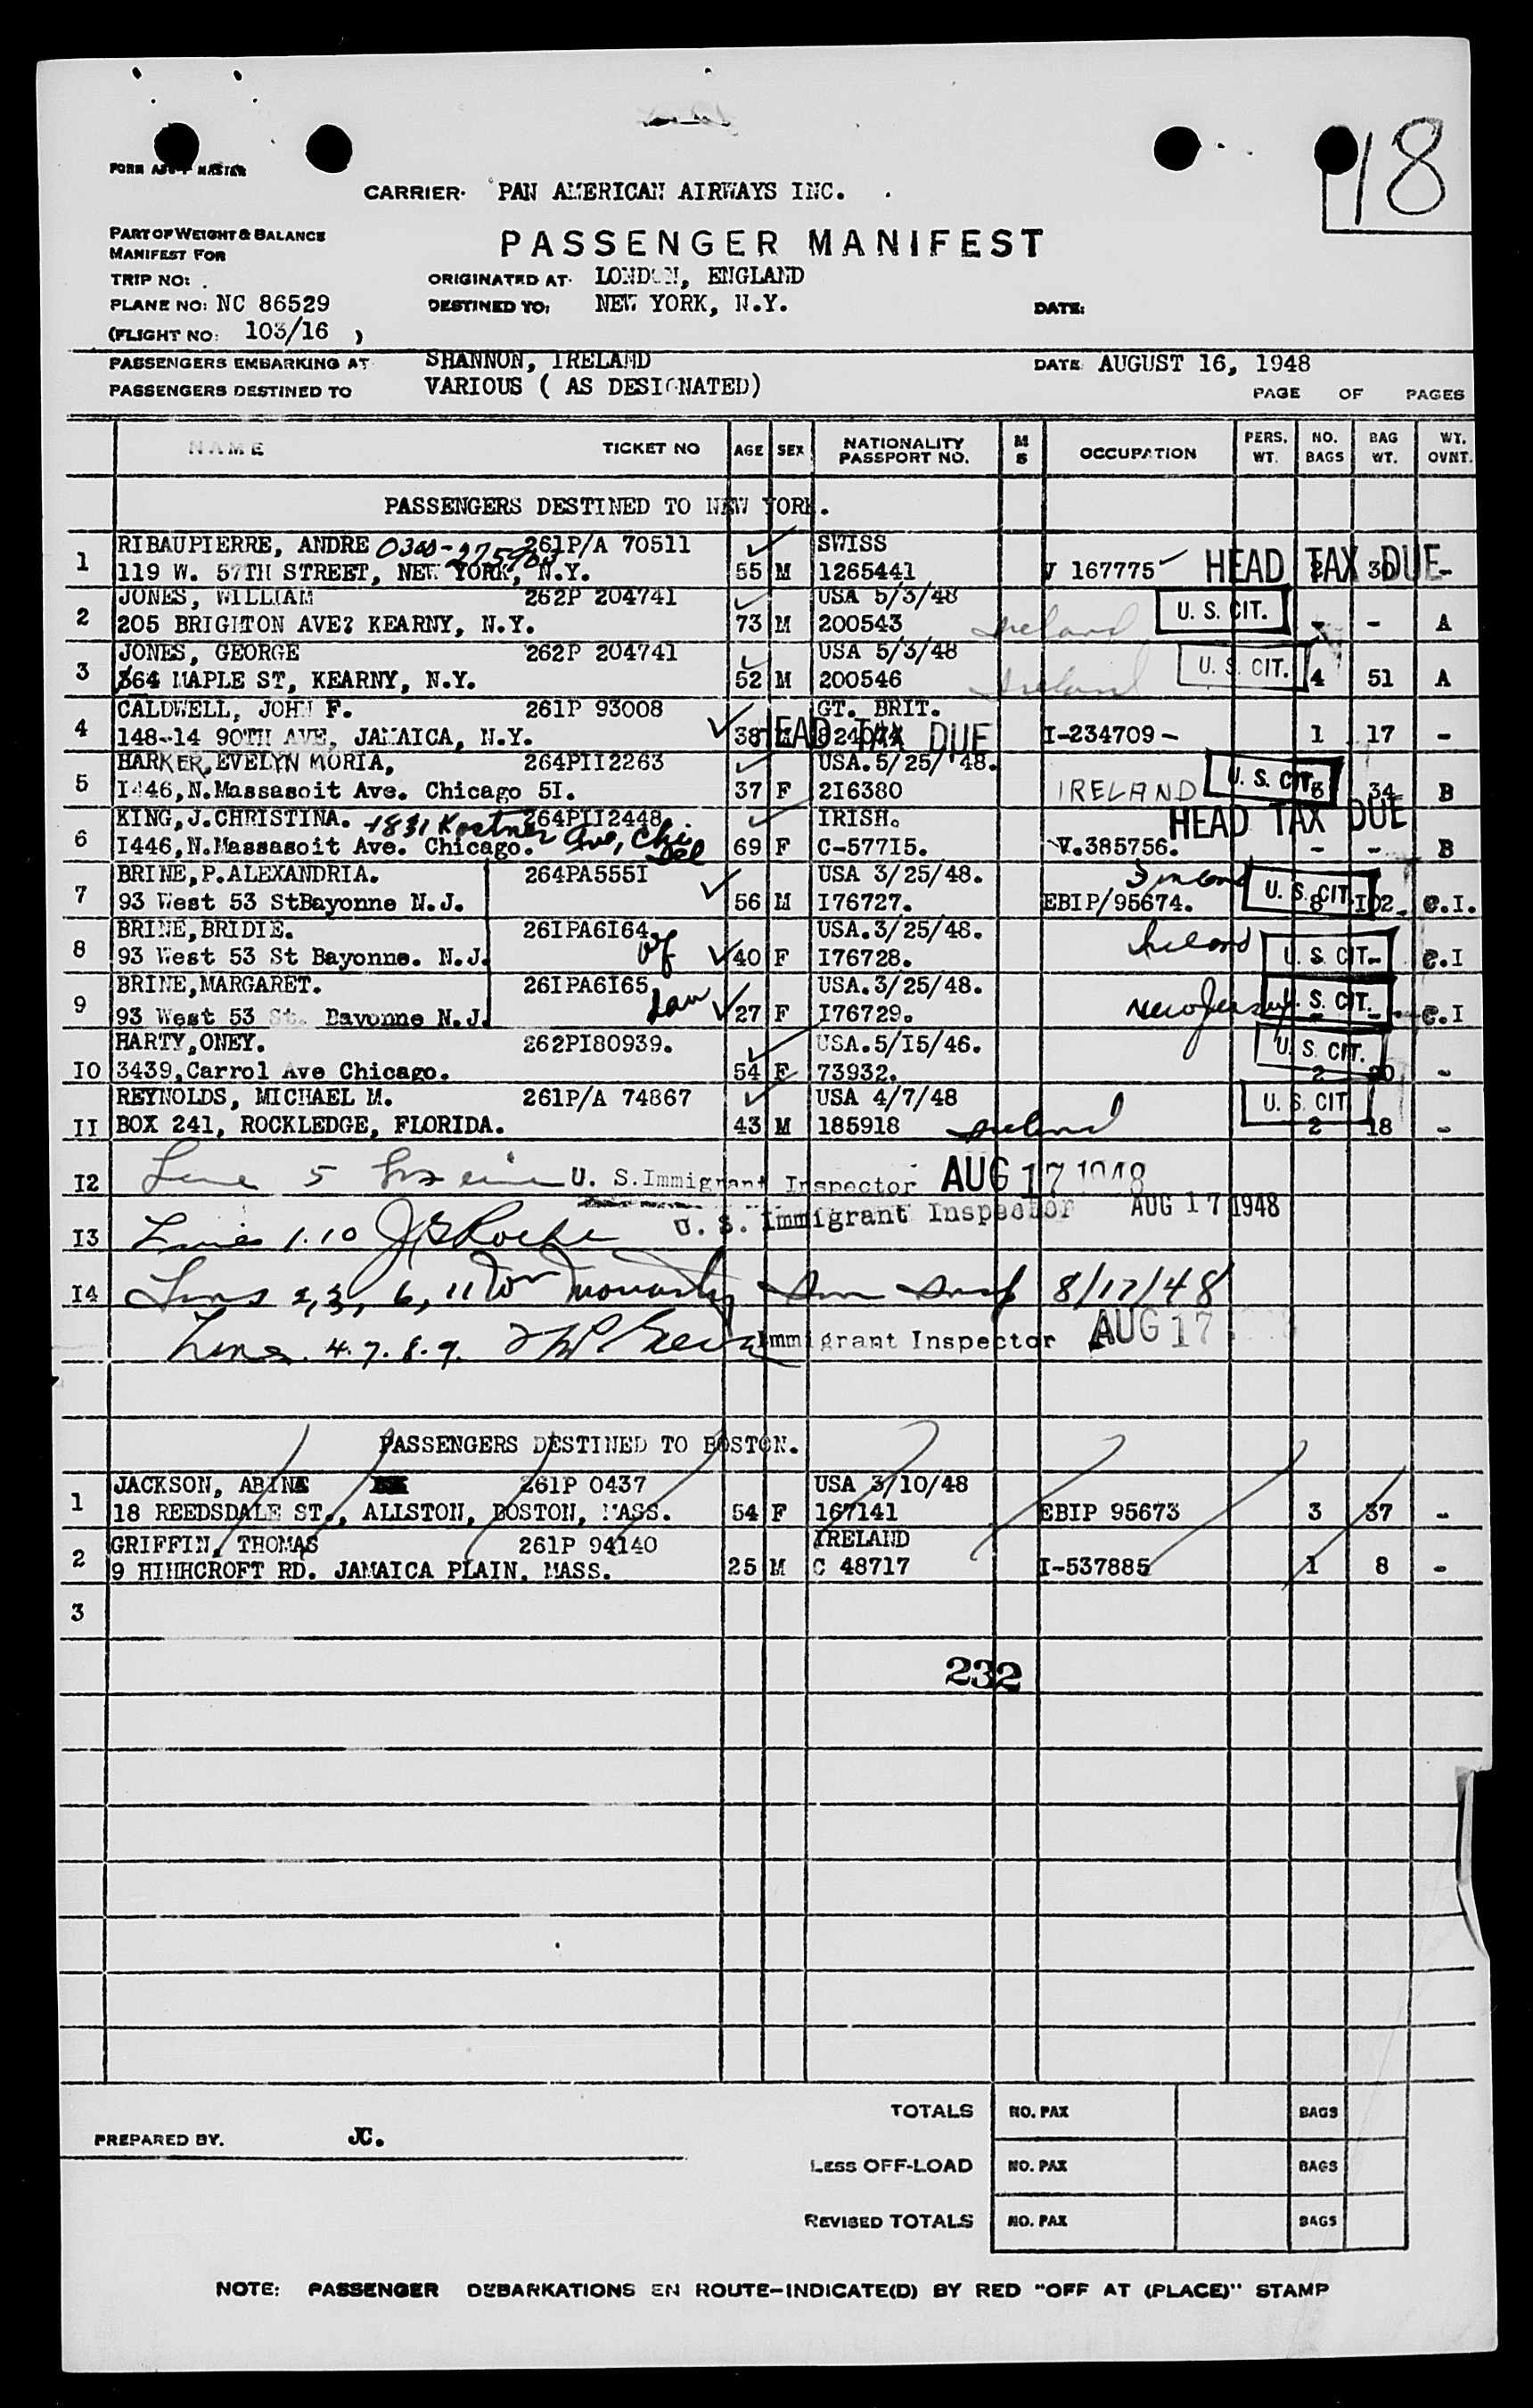 18
CARRIER· PAN AMERICAN AIRWAYS INC.
PART OF WEIGHT & BALANCE
MANIFEST FOR
PASSENGER MANIFEST
TRIP NO:
ORIGINATED AT· LONDON, ENGLAND
PLANE NO: NC 86529
DESTINED TO: NEW YORK, N.Y.
DATE:
(FLIGHT NO: 103/16 )
PASSENGERS EMBARKING AT SHANNON, IRELAND
DATE AUGUST 16, 1948
PASSENGERS DESTINED TO VARIOUS ( AS DESIGNATED)
PAGE OF PAGES
NAME TICKET NO AGE SEX NATIONALITY PASSPORT NO. M S OCCUPATION PERS. WT. NO. BAGS BAG WT. WT. OVNT.
PASSENGERS DESTINED TO NEW YORK.
RIBAUPIERRE, ANDRE 261P/A 70511 SWISS
1 119 W. 57TH STREET, NEW YORK, N.Y. 55 M 1265441 V 167775 HEAD TAX DUE -
JONES, WILLIAM 262P 204741 USA 5/3/48
2 205 BRIGHTON AVE? KEARNY, N.Y. 73 M 200543 Ireland U. S. CIT. - - A
JONES, GEORGE 262P 204741 USA 5/3/48
3 864 MAPLE ST, KEARNY, N.Y. 52 M 200546 Ireland U. S. CIT. 4 51 A
CALDWELL, JOHN F. 261P 93008 GT. BRIT.
4 148-14 90TH AVE, JAMAICA, N.Y. 38 HEAD TAX DUE I-234709 - 1 17 -
BARKER,EVELYN MORIA, 264PII2263 USA.5/25/'48.
5 I446,N.Massasoit Ave. Chicago 5I. 37 F 2I6380 IRELAND U. S. CIT. 34 B
KING,J.CHRISTINA. 1831 Kostner Ave, Chi 264PII2448. IRISH. HEAD TAX DUE
6 I446,N.Massasoit Ave. Chicago. 69 F C-57715. V.385756. - - B
BRINE,P.ALEXANDRIA. 264PA555I USA 3/25/48.
7 93 West 53 StBayonne N.J. 56 M I76727. EBIP/95674. U. S. CIT. 8 I02. C.I.
BRINE,BRIDIE. 26IPA6I64. USA.3/25/48.
8 93 West 53 St Bayonne. N.J. 40 F I76728. Ireland U. S. CIT. - C.I
BRINE,MARGARET. 26IPA6I65 USA.3/25/48.
9 93 West 53 St. Bayonne N.J. 27 F I76729. New Jersey U. S. CIT. - C.I
HARTY,ONEY. 262PI80939. USA.5/I5/46.
IO 3439,Carrol Ave Chicago. 54 F 73932. U. S. CIT. 2 -
REYNOLDS, MICHAEL M. 261P/A 74867 USA 4/7/48
II BOX 241, ROCKLEDGE, FLORIDA. 43 M 185918 Ireland U. S. CIT 2 18 -
I2 Line 5 U. S. Immigrant Inspector AUG 17 1948
I3 Lines 1.10 U. S. Immigrant Inspector AUG 17 1948
I4 Lines 2, 3, 6, 11 8/17/48
Lines 4.7.8.9. Immigrant Inspector AUG 17
PASSENGERS DESTINED TO BOSTON.
JACKSON, 261P 0437 USA 3/10/48
1 18 REEDSDALE ST., ALLSTON, BOSTON, MASS. 54 F 167141 EBIP 95673 3 37 -
GRIFFIN, THOMAS 261P 94140 IRELAND
2 9 RD. JAMAICA PLAIN. MASS. 25 M C 48717 I-537885 1 8 -
3
232
TOTALS NO. PAX BAGS
PREPARED BY. JC.
LESS OFF-LOAD NO. PAX BAGS
REVISED TOTALS NO. PAX BAGS
NOTE: PASSENGER DEBARKATIONS EN ROUTE-INDICATE(D) BY RED "OFF AT (PLACE)" STAMP